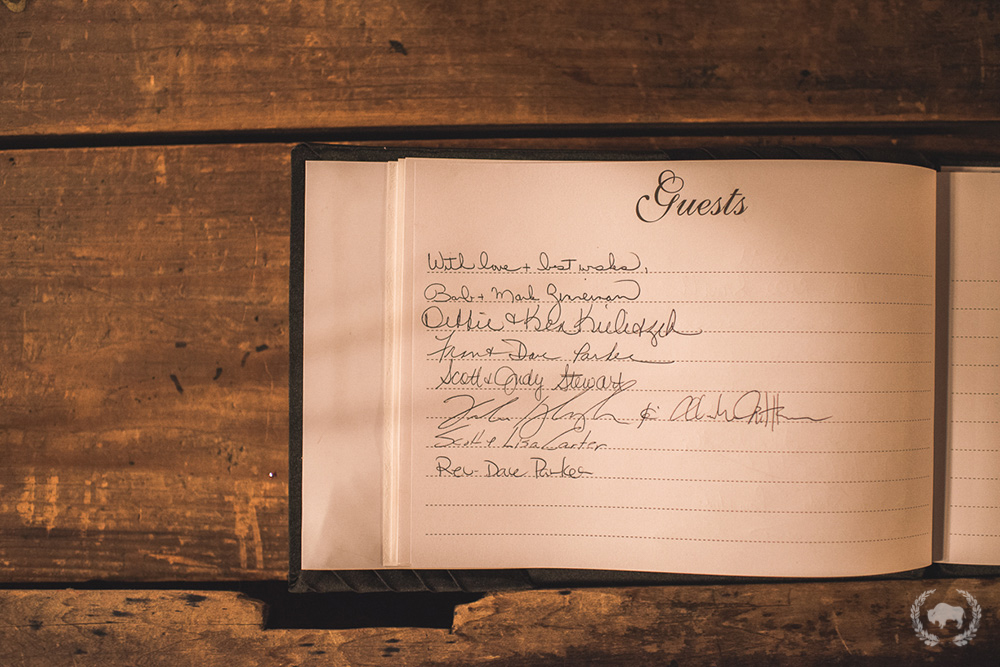 Guests
With love + best wishes,
Barb + Mark Zinneman
Debbie & Ken
Fran + Dave Parker
Scott & Judy Stewart
&
Scott & Lisa Carter
Rev. Dave Parker